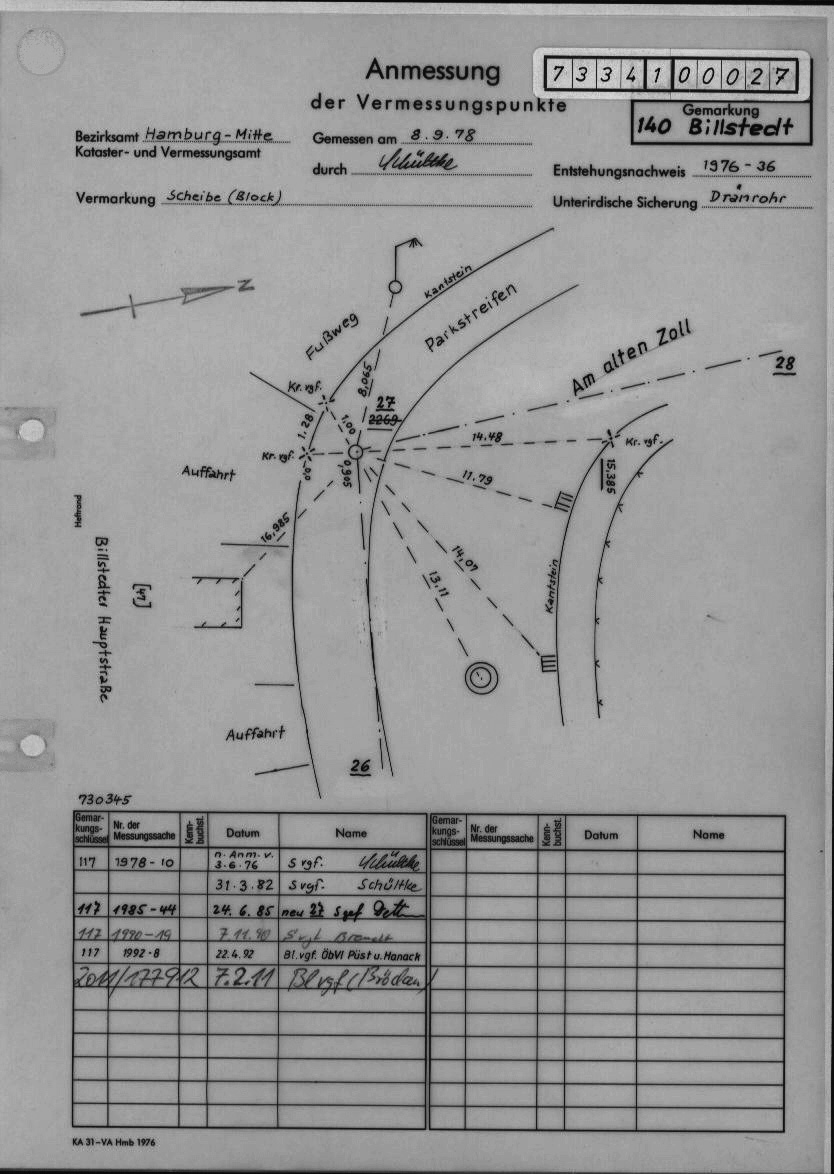 Anmessung
der Vermessungspunkte
7 3 3 4 1 0 0 0 2 7
Gemarkung
140 Billstedt
Bezirksamt Hamburg-Mitte
Kataster- und Vermessungsamt
Gemessen am 8.9.78
durch Schültke
Entstehungsnachweis 1976-36
Vermarkung Scheibe (Block)
Unterirdische Sicherung Dränrohr
N
Fußweg
Kantstein
Parkstreifen
Am alten Zoll
28
Kr.vgf.
8,065
27
2269
1.28
1.00
14.48
Kr.vgf.
Kr.vgf.
0,0
0,905
11.79
15,385
Auffahrt
16,985
14,07
13,11
Heftrand
Billstedter Hauptstraße
[47]
Kantstein
Auffahrt
26
730345
Gemar-kungs-schlüssel Nr. der Messungssache Kenn-buchst. Datum Name Gemar-kungs-schlüssel Nr. der Messungssache Kenn-buchst. Datum Name
117 1978-10 n. Anm. v. 3.6.76 Svgf. Schültke
31.3.82 Svgf. Schültke
117 1985-44 24.6.85 neu 27 Sgef
117 1990-19 7.11.90 Svgf Brandt
117 1992-8 22.4.92 Bl.vgf. ÖbVI Püst u. Hanack
2011/177912 7.2.11 Bl vgf
KA 31-VA Hmb 1976